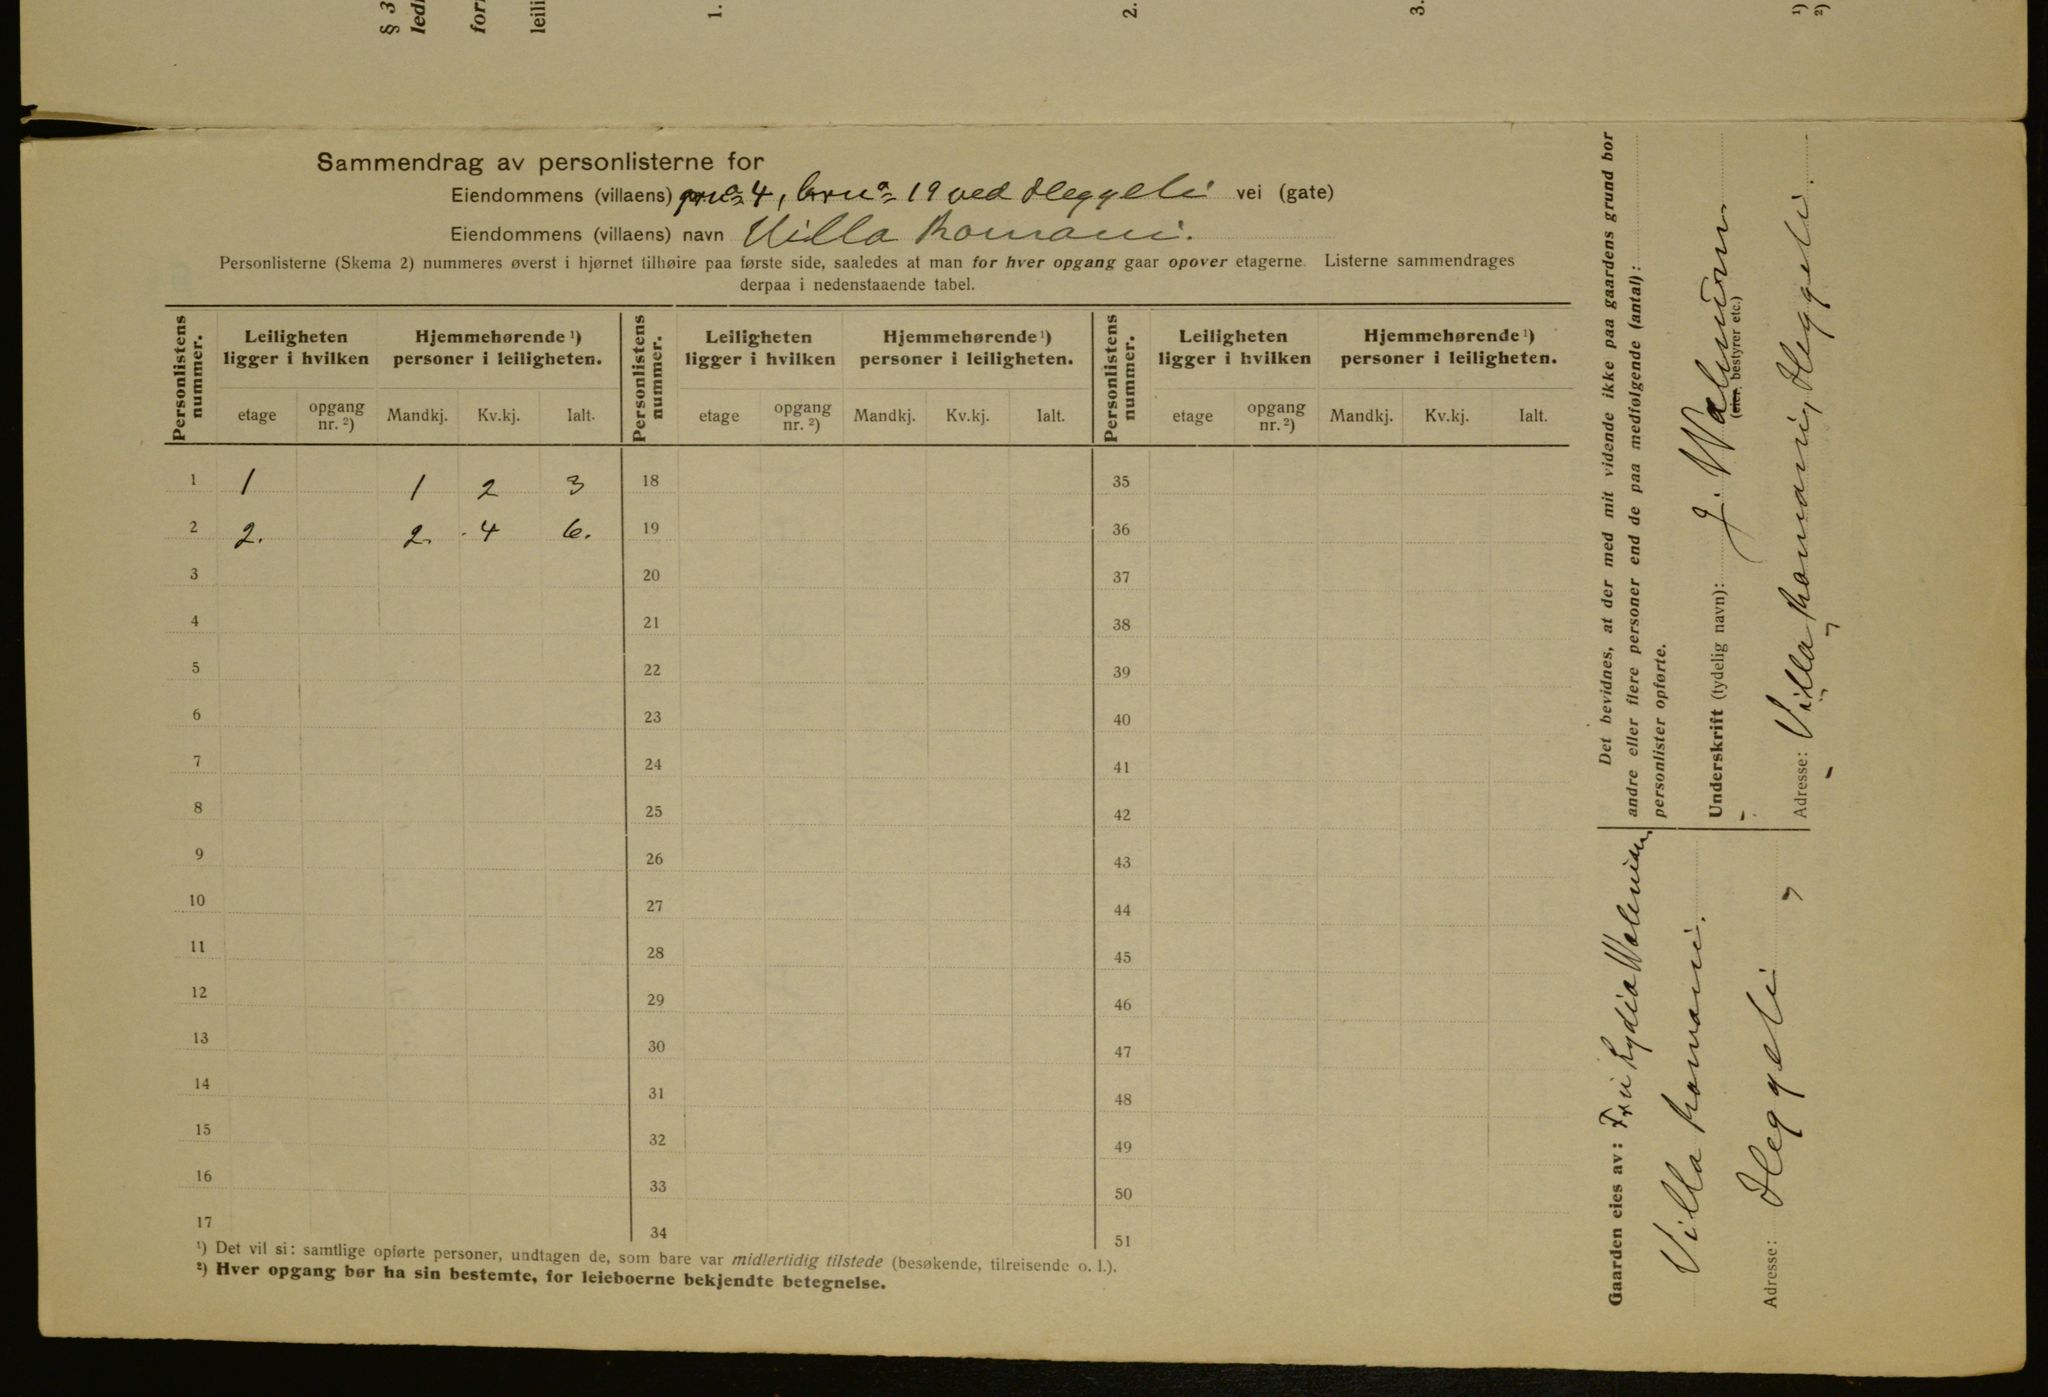 § 3
led
for
leili
1.
2.
3.
¹)
²)
Sammendrag av personlisterne for
Eiendommens (villaens) grn 4, brn 19 ved Heggeli vei (gate)
Eiendommens (villaens) navn Villa Romani.
Personlisterne (Skema 2) nummeres øverst i hjørnet tilhøire paa første side, saaledes at man for hver opgang gaar opover etagerne. Listerne sammendrages
derpaa i nedenstaaende tabel.
Personlistens nummer. Leiligheten ligger i hvilken Hjemmehørende ¹) personer i leiligheten. Personlistens nummer. Leiligheten ligger i hvilken Hjemmehørende ¹) personer i leiligheten. Personlistens nummer. Leiligheten ligger i hvilken Hjemmehørende ¹) personer i leiligheten.
etage opgang nr. ²) Mandkj. Kv.kj. Ialt. etage opgang nr. ²) Mandkj. Kv.kj. Ialt. etage opgang nr. ²) Mandkj. Kv.kj. Ialt.
1 1 1 2 3 18 35
2 2. 2. 4 6. 19 36
3 20 37
4 21 38
5 22 39
6 23 40
7 24 41
8 25 42
9 26 43
10 27 44
11 28 45
12 29 46
13 30 47
14 31 48
15 32 49
16 33 50
17 34 51
¹) Det vil si: samtlige opførte personer, undtagen de, som bare var midlertidig tilstede (besøkende, tilreisende o. l.).
²) Hver opgang bør ha sin bestemte, for leieboerne bekjendte betegnelse.
Det bevidnes, at der med mit vidende ikke paa gaardens grund bor
andre eller flere personer end de paa medfølgende (antal):
personlister opførte.
Underskrift (tydelig navn): J.
(eier, bestyrer etc.)
Adresse: Villa Romani, Heggeli.
Gaarden eies av: Fru Lydia
Villa Romani.
Adresse: Heggeli